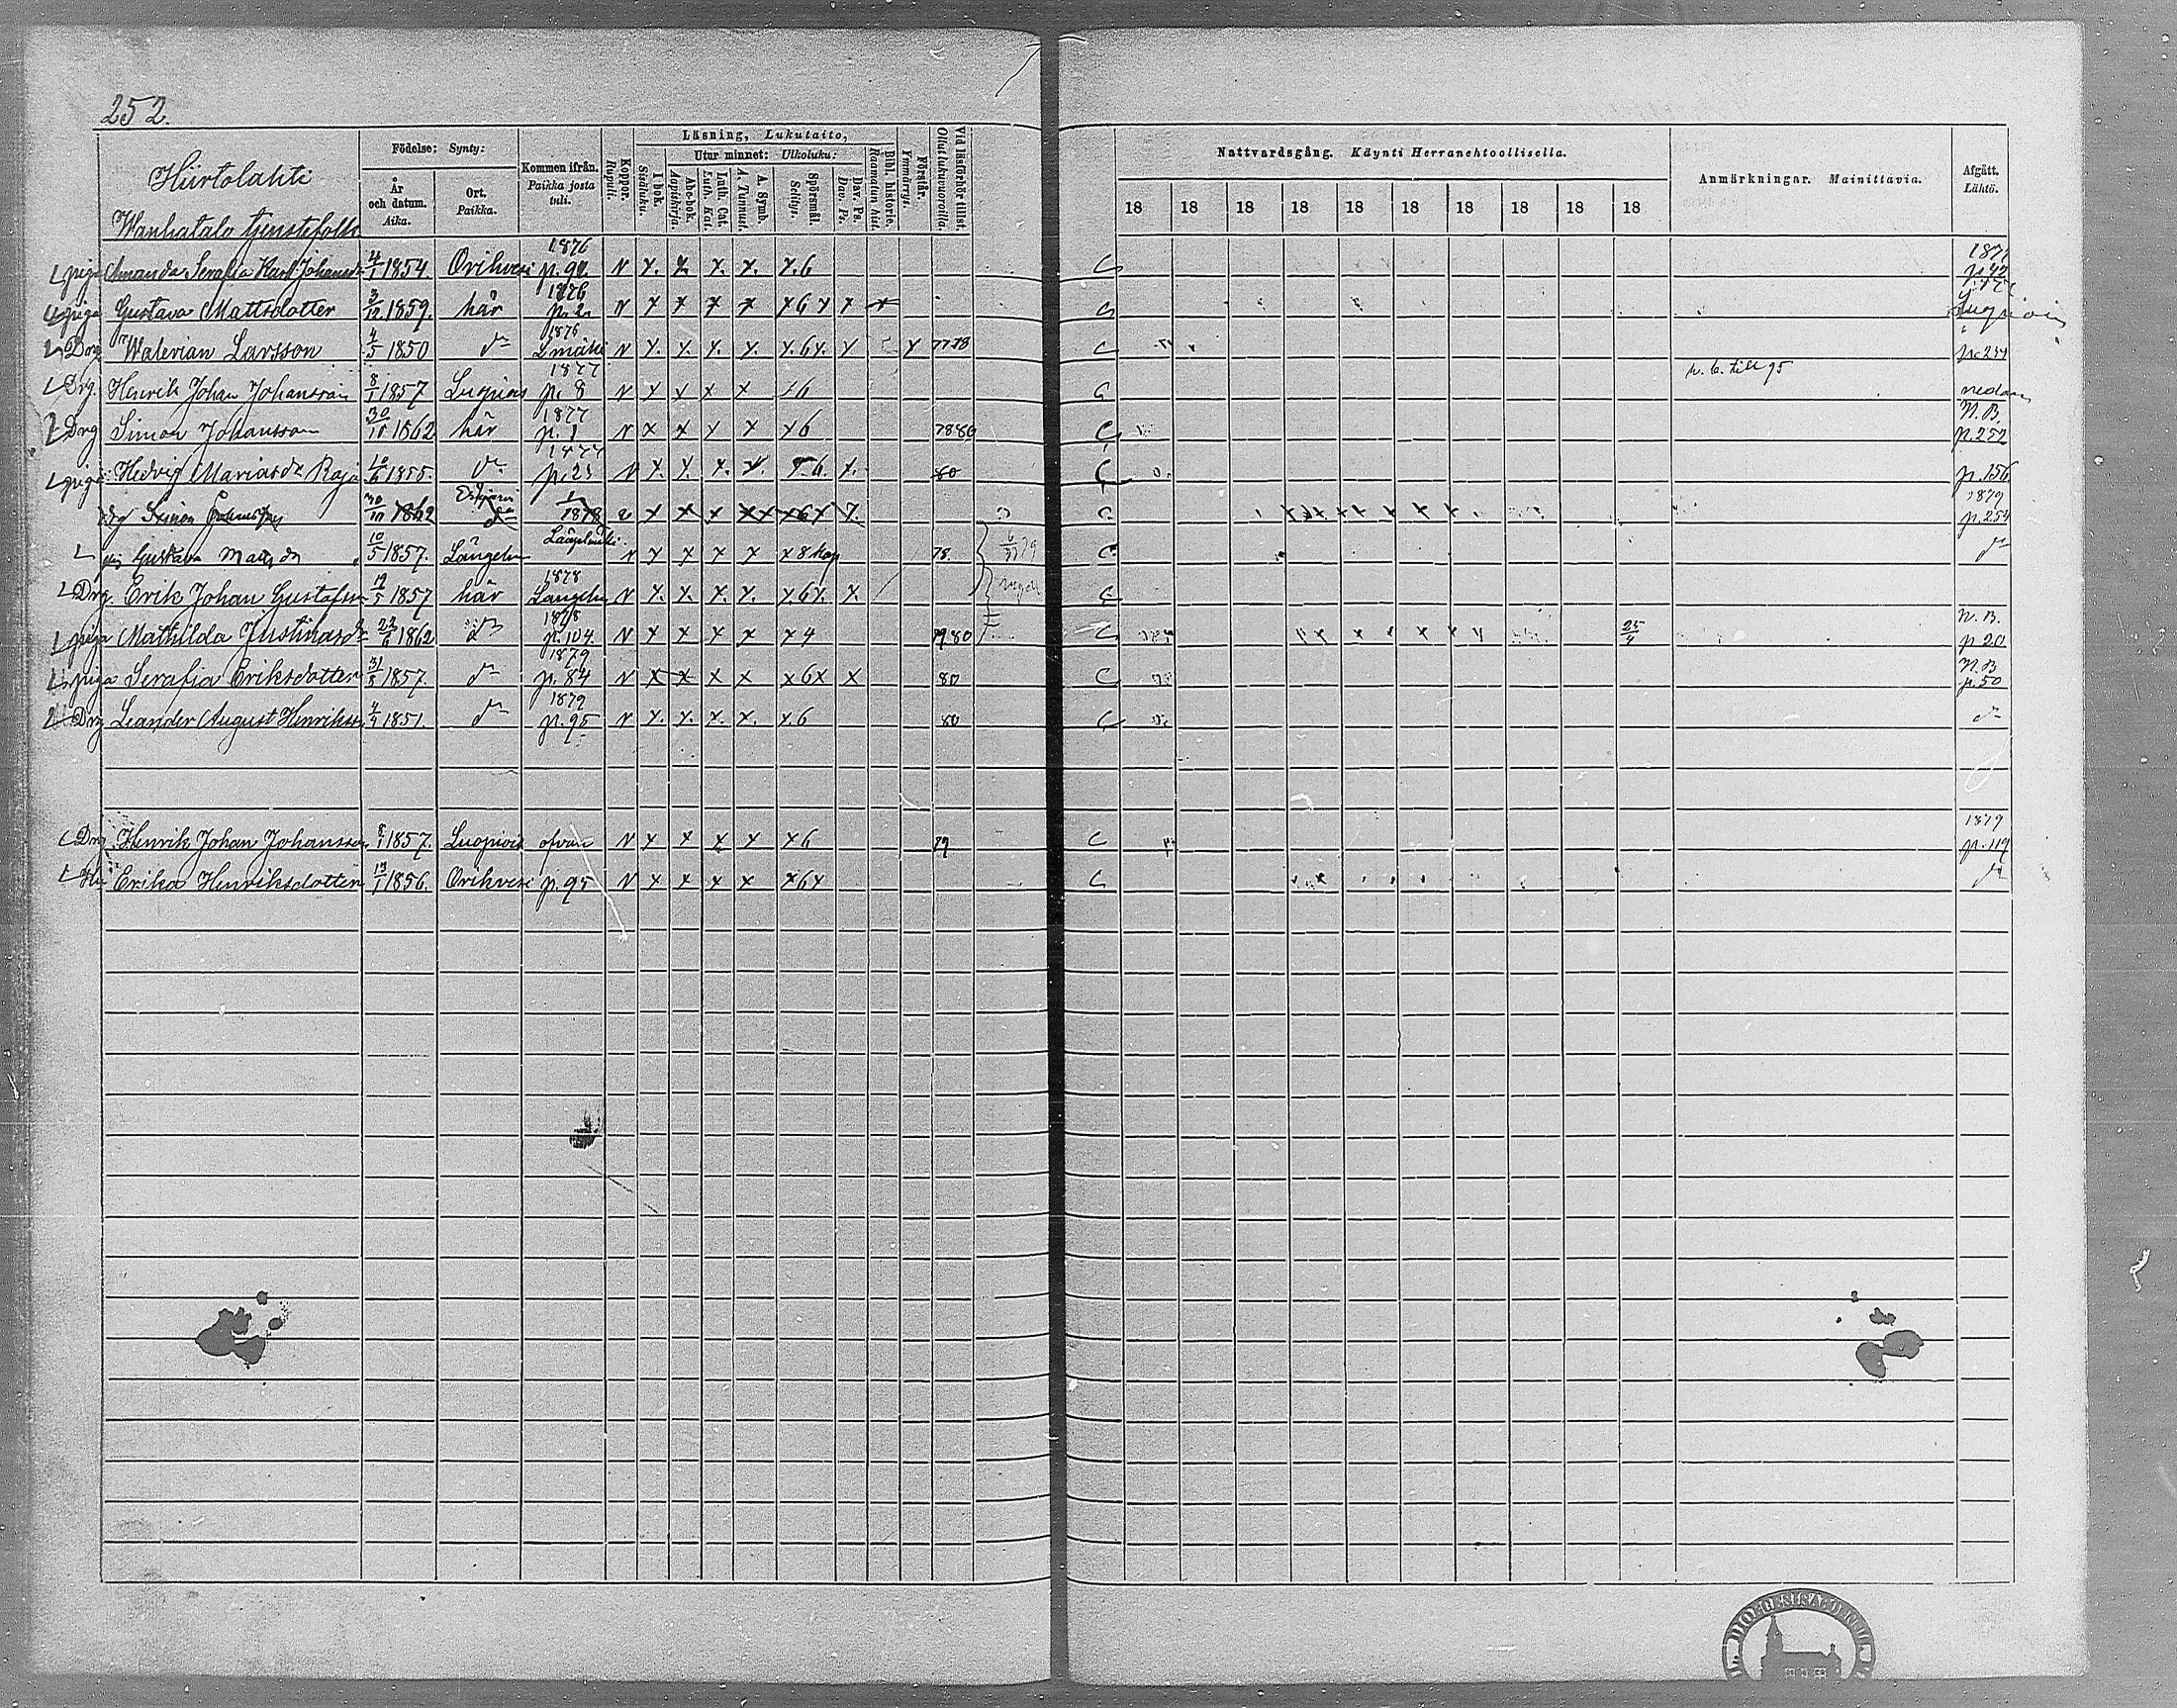 252.
Läsning, Lukutaito,
Födelse: Synty:
Utur minnet: Ulkoluku:
Nattvardsgång. Käynti Herranehtoollisella.
Hirtolahti
År och datum. Aika.
Ort. Paikka.
Kommen ifrån. Paikka josta tuli.
Koppor. Ruputi.
I bok. Sisäluku.
Abc-bok. Aapiskirja.
Luth. Cat. Luth. Kat.
A. Symb. A. Tunnust.
Spörsmål. Selitys.
Dav. Ps. Dav. Ps.
Bibl. historie. Raamatun hist.
Förstår. Ymmärrys.
Vid läsförhör tillst. Ollut lukuvuoroilla.
18 18 18 18 18 18 18 18 18 18
Anmärkningar. Mainittavia.
Afgått. Lähtö.
Wanhatalo tjenstefolk
piga Amanda Serafia Karl Johansdr 4/1 1854. Orihvesi 1876 p. 92 N x. x. x. x. x. 6 p. 42
piga Gustava Mattsdotter 3/12 1859. här 1876 p. 2 N x x x x x 6 x x x
Drg Walerian Larsson 4/5 1850 do 1876 Lmäki N x. x. x. x. x. 6 x. x x 77 78 p. 254
Drg. Henrik Johan Johansson 8/1 1857 Luopiois 1877 p. 8 N x x x x x 6 n. b. till 95 nedan
Drg Simon Johansson 30/10 1862 här 1877 p. 1 N x x x x x 6 78 80 N. B. p. 252
piga Hedvig Mariasdr Raja 1855. do 1877 p. 23 N x. x. x. x. x. 6. x. 80 p. 156
drg Simon 30/10 1862 do 1878 x x x x x x 6 x x. 1879 p. 254
pig Gustava Mattsdr 10/5 1857. Längelm Längelmäki N x x x x x 8 78. do
Drg. Erik Johan Gustafsson 1857 här 1878 Längelm N x. x. x. x. x. 6 x. x.
piga Mathilda Justinasdr 22/6 1862 do 1878 p. 104. N x x x x x 4 79 80 25/4 N. B. p 20
piga Serafia Eriksdotter 31/5 1857. do 1879 p. 84 N x x x x x 6 x x 80 N. B p. 50
Drg Leander August Henrikss 1851. do 1879 p. 95 N x. x. x. x. x 6 80 do
Drg Henrik Johan Johansson 8/1 1857. Luopiois ofvan N x x x x x 6 79 1879 p. 119
Hu Erika Henriksdotter 13/1 1856. Orihvesi p. 95 N x x x x x 6 x do